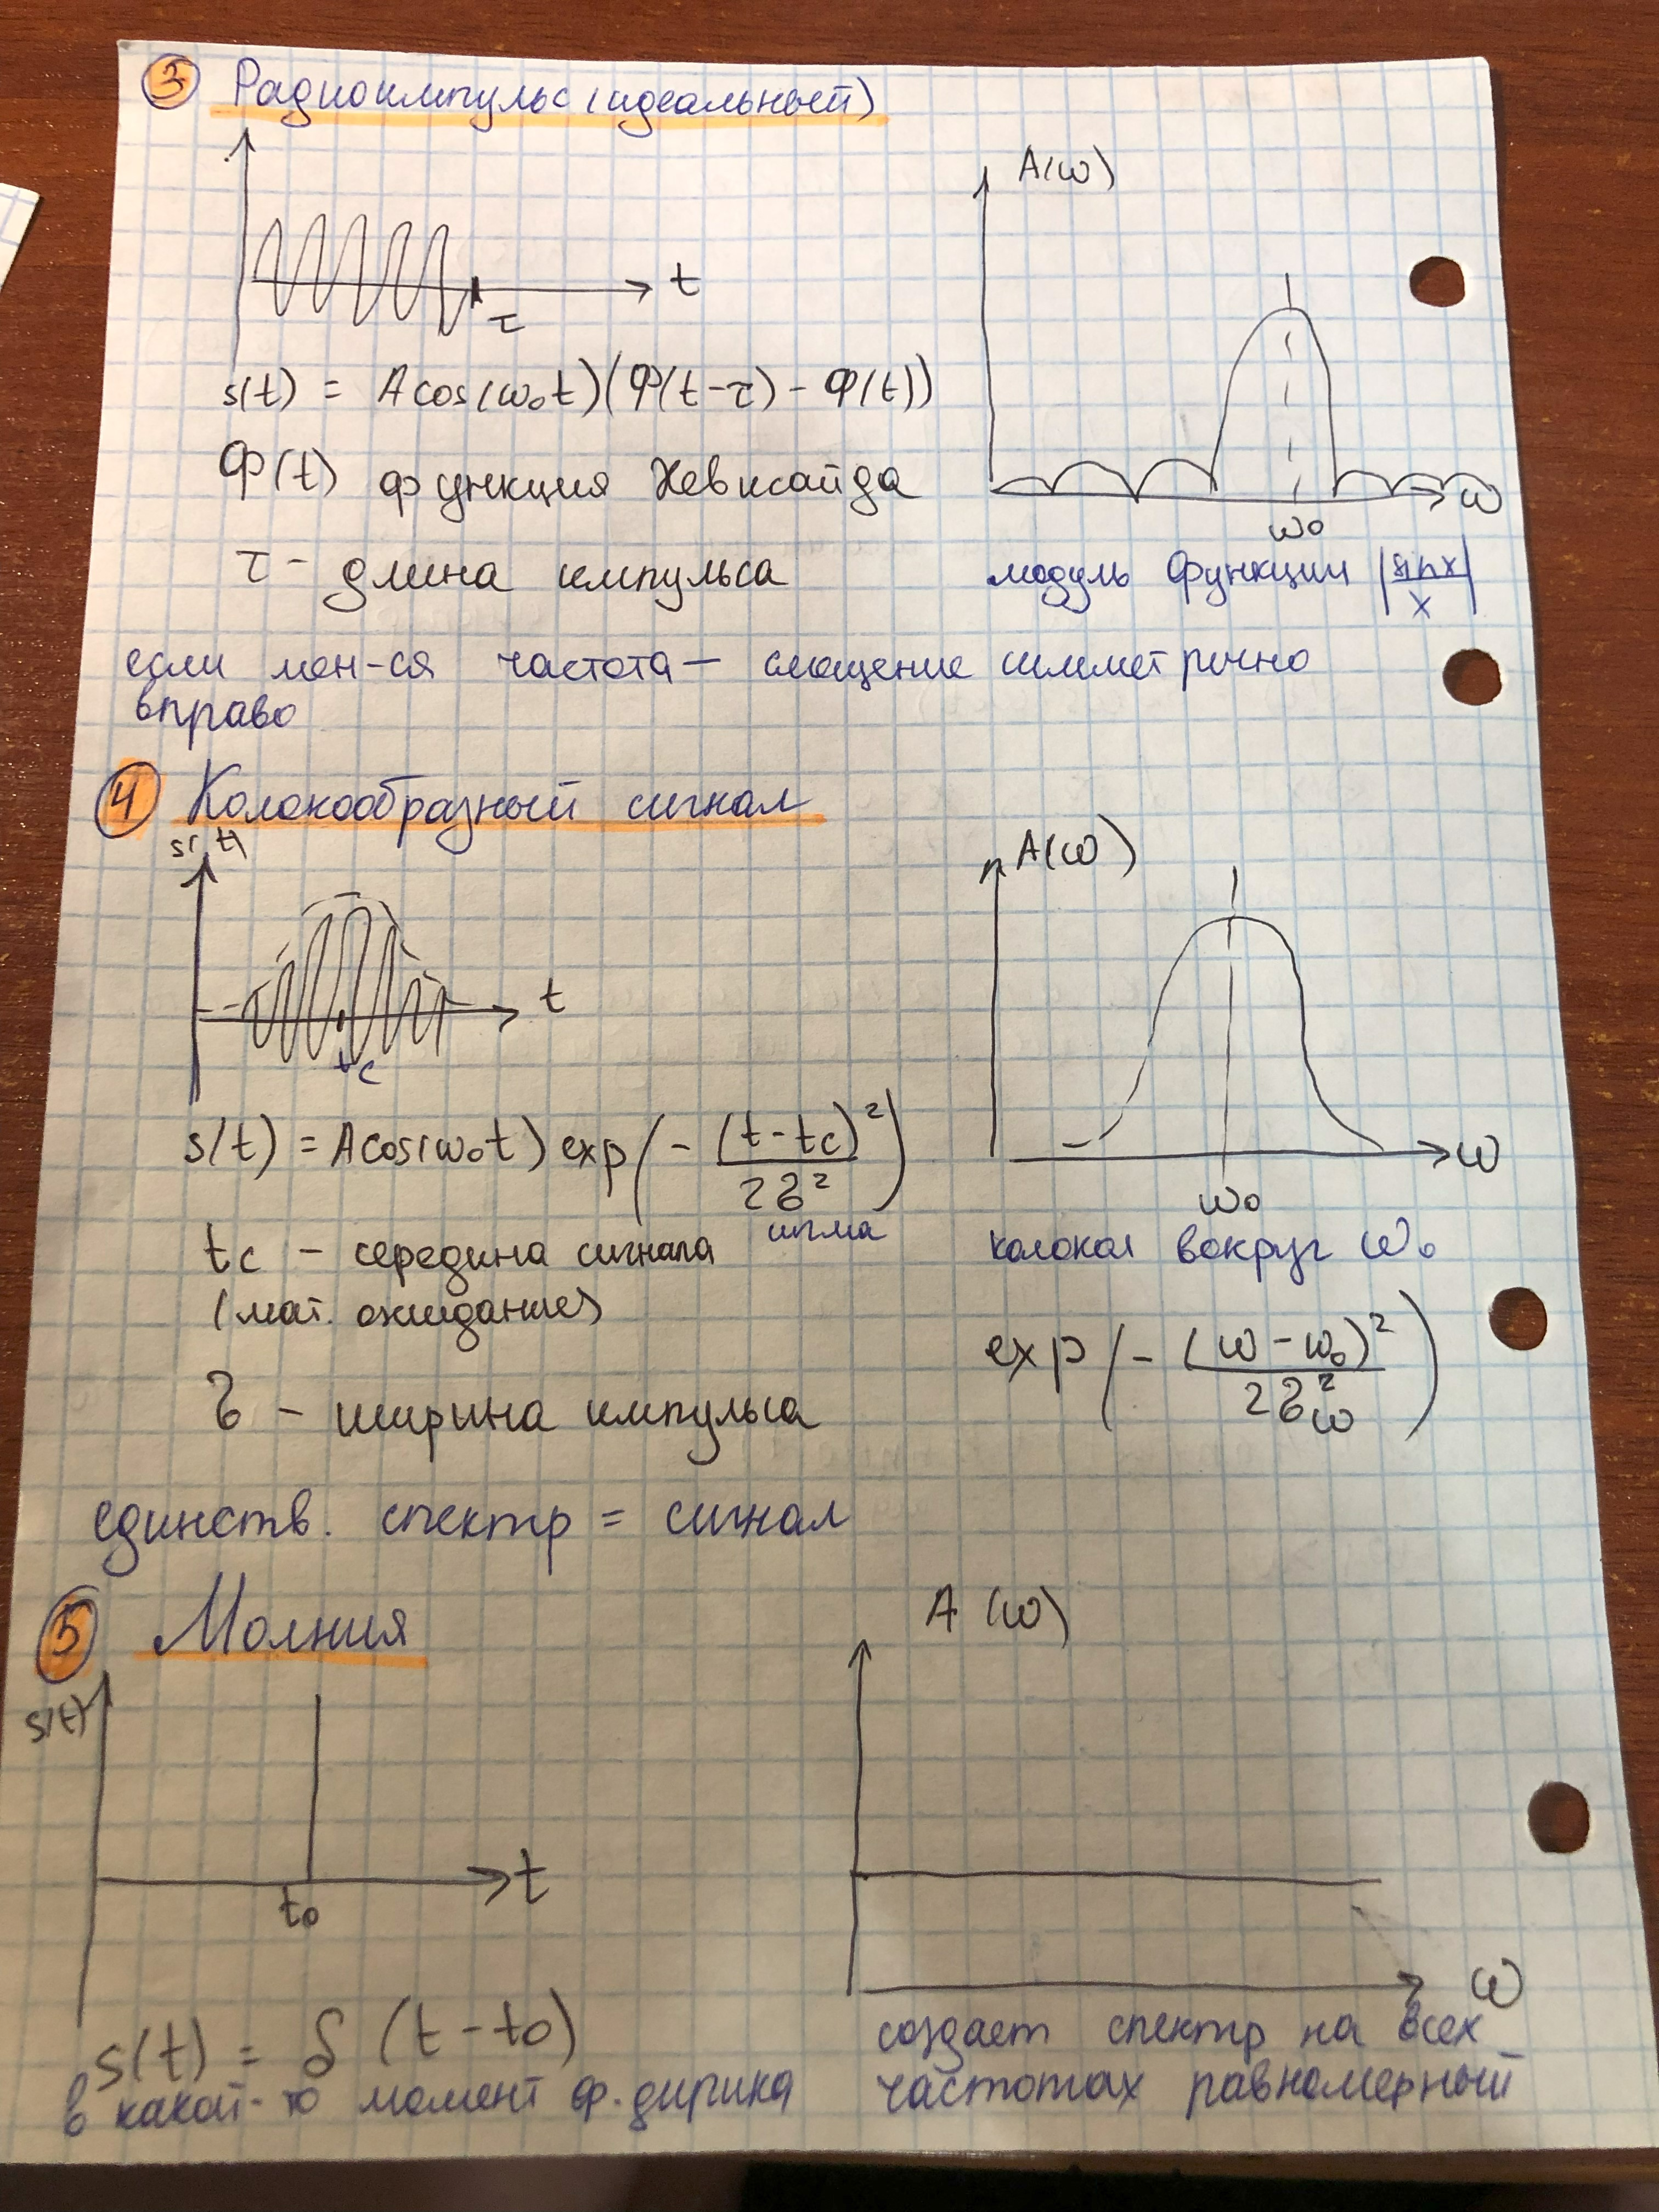 3 Радиоимпульс (идеальный)
A(ω)
t
τ
s(t) = A cos(ω₀t)(Φ(t-τ) - Φ(t))
ω
ω₀
Φ(t) функция Хевисайда
τ - длина импульса
модуль функции |sinx/x|
если мен-ся частота — смещение симметрично
вправо
4 Колокообразный сигнал
s(t)
A(ω)
t
tc
ω
ω₀
s(t) = A cos(ω₀t) exp(- (t-tc)²/2δ²)
сигма
tc - середина сигнала
(мат. ожидание)
колокол вокруг ω₀
exp(- (ω-ω₀)²/2δω²)
δ - ширина импульса
единств. спектр = сигнал
5 Молния
s(t)
A(ω)
t
t₀
ω
s(t) = δ (t-t₀)
в какой-то момент ф. дирика
создает спектр на всех
частотах равномерный